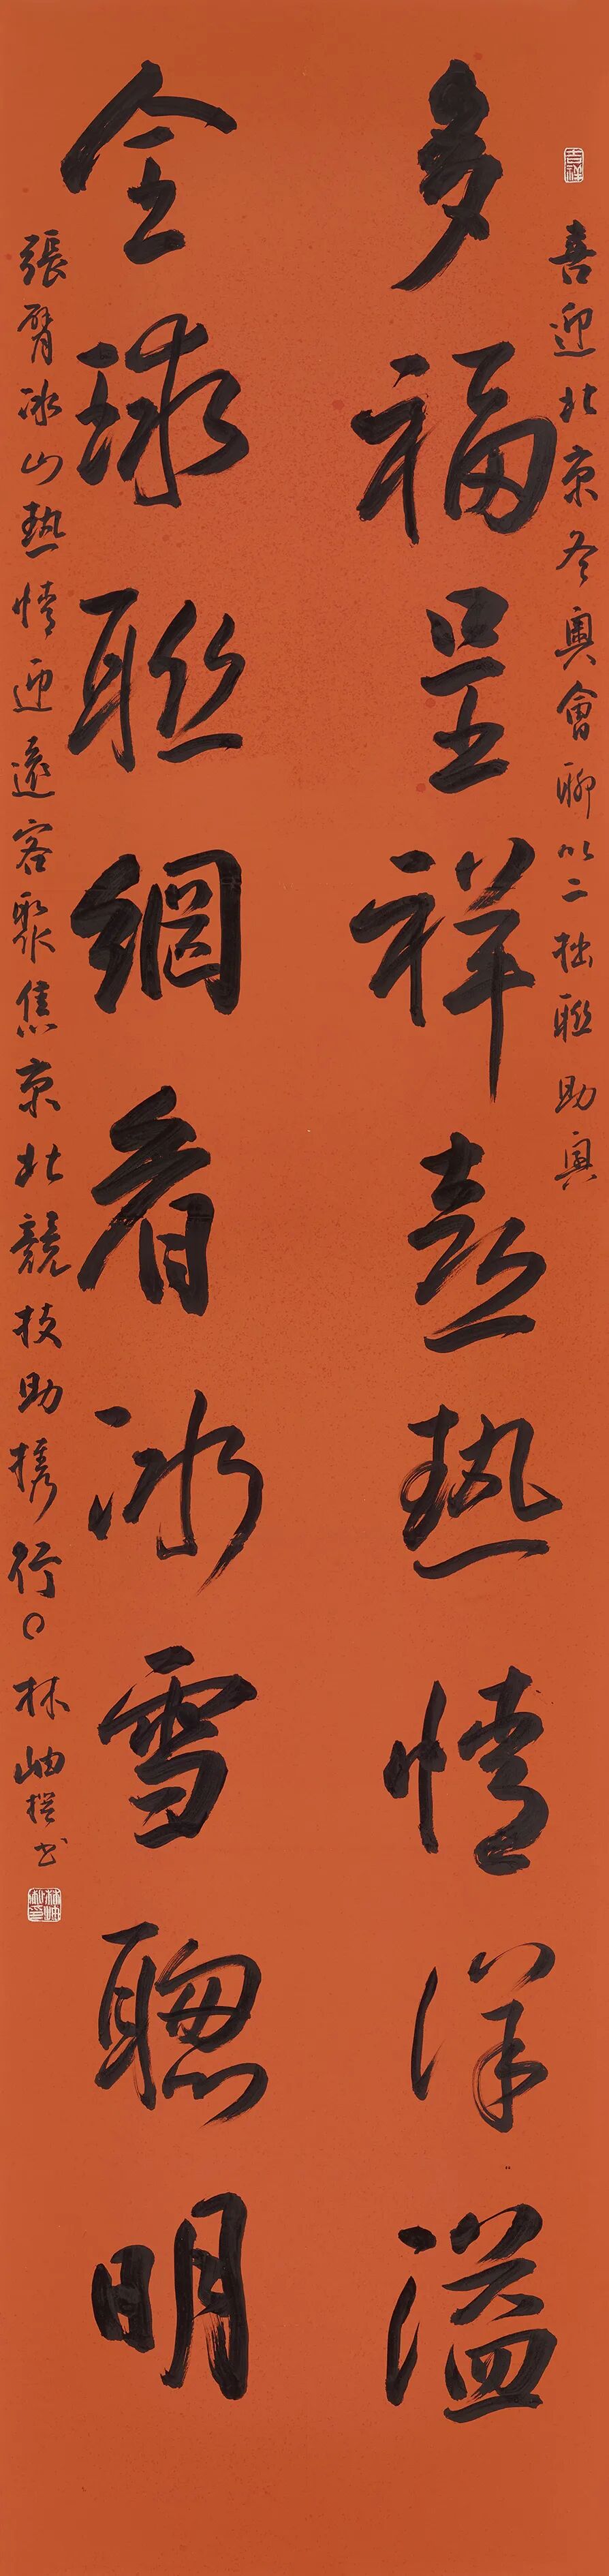 吉祥
喜迎北京冬奧會聊以二拙聯助興
多福呈祥喜熱情洋溢
全球聯網看冰雪聰明
張臂冰山熱情迎遠客聚焦京北競技助攜行〇林岫撰書